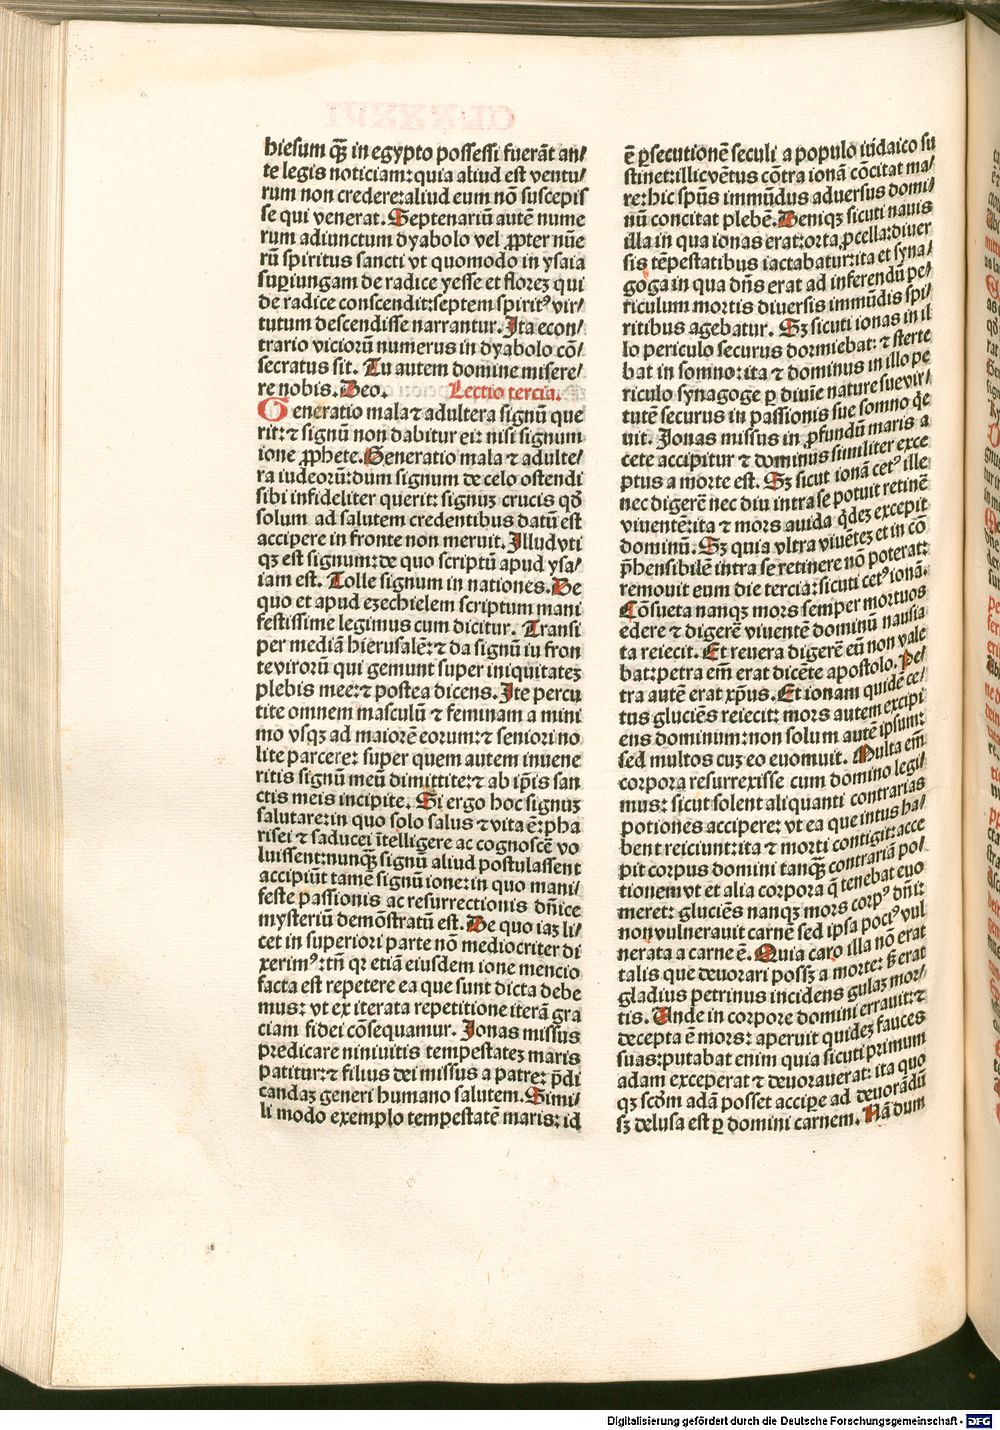 hiesum q̃ȝ in egypto possessi fuerãt an/
te legis noticiam: quia aliud est ventu/
rum non credere: aliud eum nõ suscepis
se qui venerat. Septenariũ autẽ nume
rum adiunctum dyabolo vel ꝓpter nũe
rũ spiritus sancti vt quomodo in ysaia
suꝑiungam de radice yesse et floreȝ qui
de radice conscendit: septem spiritꝰ vir/
tutum descendisse narrantur. Ita econ/
trario viciorũ numerus in dyabolo cõ/
secratus sit. Tu autem domine misere/
re nobis. Deo. Lectio tercia.
Generatio mala ⁊ adultera signũ que
rit: ⁊ signũ non dabitur ei: nisi signum
ione ꝓphete. Generatio mala ⁊ adulte/
ra iudeorũ: dum signum de celo ostendi
sibi infideliter querit: signuȝ crucis qđ
solum ad salutem credentibus datũ est
accipere in fronte non meruit. Illud vti
qȝ est signum: de quo scriptũ apud ysa/
iam est. Tolle signum in nationes. De
quo et apud ezechielem scriptum mani
festissime legimus cum dicitur. Transi
per mediã hierusalẽ: ⁊ da signũ iu fron
te virorũ qui gemunt super iniquitateȝ
plebis mee: ⁊ postea dicens. Ite percu
tite omnem masculũ ⁊ feminam a mini
mo vsqȝ ad maiorẽ eorum: ⁊ seniori no
lite parcere: super quem autem inuene
ritis signũ meũ dimittite: ⁊ ab ip̃is san
ctis meis incipite. Si ergo hoc signuȝ
salutare: in quo solo salus ⁊ vita ẽ: pha
risei ⁊ saducei ĩtelligere ac cognoscẽ vo
luissent: nunq̃ȝ signũ aliud postulassent
accipiũt tamẽ signũ ione: in quo mani/
feste passionis ac resurrectionis dñice
mysteriũ demõstratũ est. De quo iaȝ li/
cet in superiori parte nõ mediocriter di
xerimꝰ: tñ qꝛ etiã eiusdem ione mencio
facta est repetere ea que sunt dicta debe
mus: vt ex iterata repetitione iterã gra
ciam fidei cõsequamur. Jonas missus
predicare niniuitis tempestateȝ maris
patitur: ⁊ filius dei missus a patre: p̃di
candaȝ generi humano salutem. Simi/
li modo exemplo tempestatẽ maris: id
ẽ ꝑsecutionẽ seculi a populo iudaico su
stinet: illic vẽtus cõtra ionã cõcitat ma/
re: hic sp̃us immũdus aduersus domi/
nũ concitat plebẽ. Deniqȝ sicuti nauis
illa in qua ionas erat: orta ꝓcella: diuer
sis tẽpestatibus iactabatur: ita et syna/
goga in qua dñs erat ad inferendũ pe/
riculum mortis diuersis immũdis spi/
ritibus agebatur. Sȝ sicuti ionas in il
lo periculo securus dormiebat: ⁊ sterte
bat in somno: ita ⁊ dominus in illo pe
riculo synagoge ꝑ diuĩe nature sue vir/
tutẽ securus in passionis sue somno q̃e
uit. Jonas missus in ꝓfundũ maris a
cete accipitur ⁊ dominus similiter exce
ptus a morte est. Sȝ sicut ionã cetꝰ ille
nec digerẽ nec diu intra se potuit retinẽ
viuentẽ: ita ⁊ mors auida q̇deȝ excepit
dominũ. Sȝ quia vltra viuẽteȝ et in cõ
p̃hensibilẽ intra se retinere nõ poterat:
remouit eum die tercia: sicuti cetꝰ ionã.
Cõsueta nanqȝ mors semper mortuos
edere ⁊ digerẽ viuentẽ dominũ nausia
ta reiecit. Et reuera digerẽ eũ non vale
bat: petra em̃ erat dicẽte apostolo. Pe/
tra autẽ erat xp̃us. Et ionam quidẽ ce/
tus gluciẽs reiecit: mors autem excipi
ens dominum: non solum autẽ ipsum:
sed multos cuȝ eo euomuit. Multa em̃
corpora resurrexisse cum domino legi/
mus: sicut solent aliquanti contrarias
potiones accipere: vt ea que intus ha/
bent reiciunt: ita ⁊ morti contigit: acce
pit corpus domini tanq̃ȝ contrariã po/
tionem vt et alia corpora q̃ tenebat euo
meret: gluciẽs nanqȝ mors corpꝰ dñi:
non vulnerauit carnẽ sed ipsa pociꝰ vul
nerata a carne ẽ. Quia caro illa nõ erat
talis que deuorari possȝ a morte: sȝ erat
gladius petrinus incidens gulaȝ mor/
tis. Unde in corpore domini errauit: ⁊
decepta ẽ mors: aperuit quideȝ fauces
suas: putabat enim quia sicuti primum
adam exceperat ⁊ deuorauerat: ita quo
qȝ scd̃m adã posset acciꝑe ad deuorãdũ
sȝ delusa est ꝑ domini carnem. Nã dum
Digitalisierung gefördert durch die Deutsche Forschungsgemeinschaft - DFG